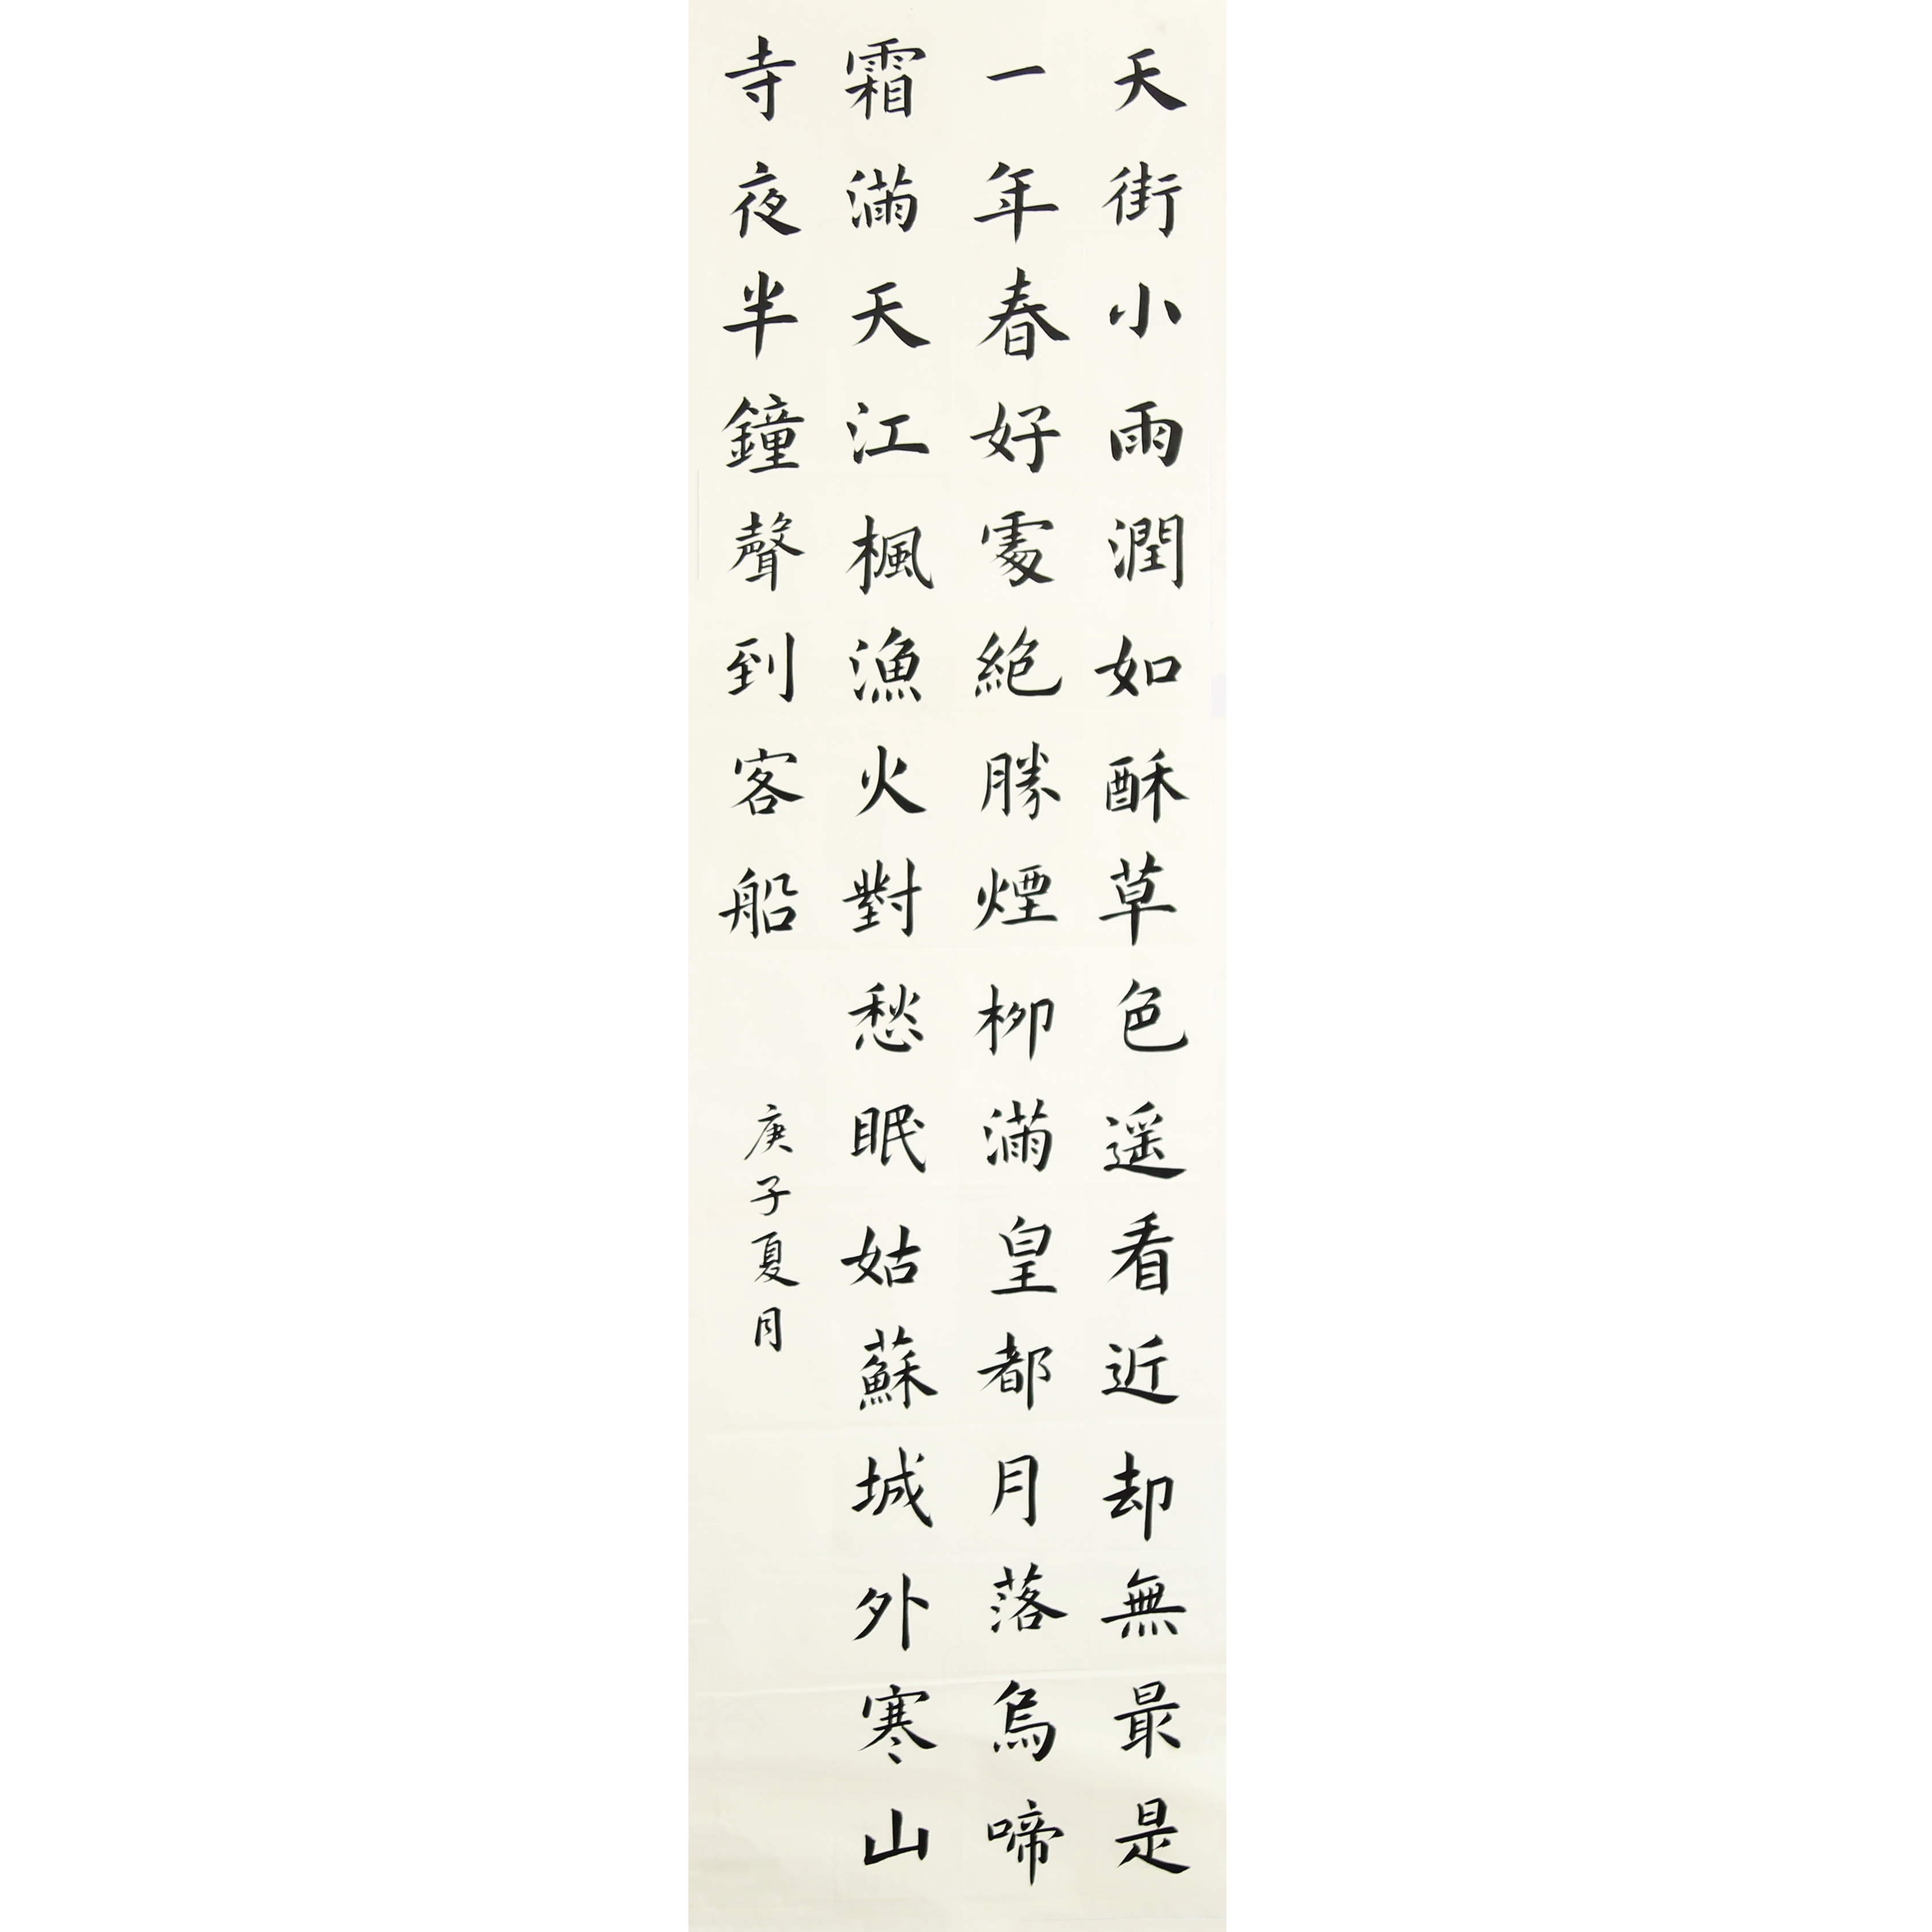 天街小雨潤如酥草色遥看近却無最是
一年春好處絶勝煙柳滿皇都月落烏啼
霜滿天江楓漁火對愁眠姑蘇城外寒山
寺夜半鐘聲到客船
庚子夏月